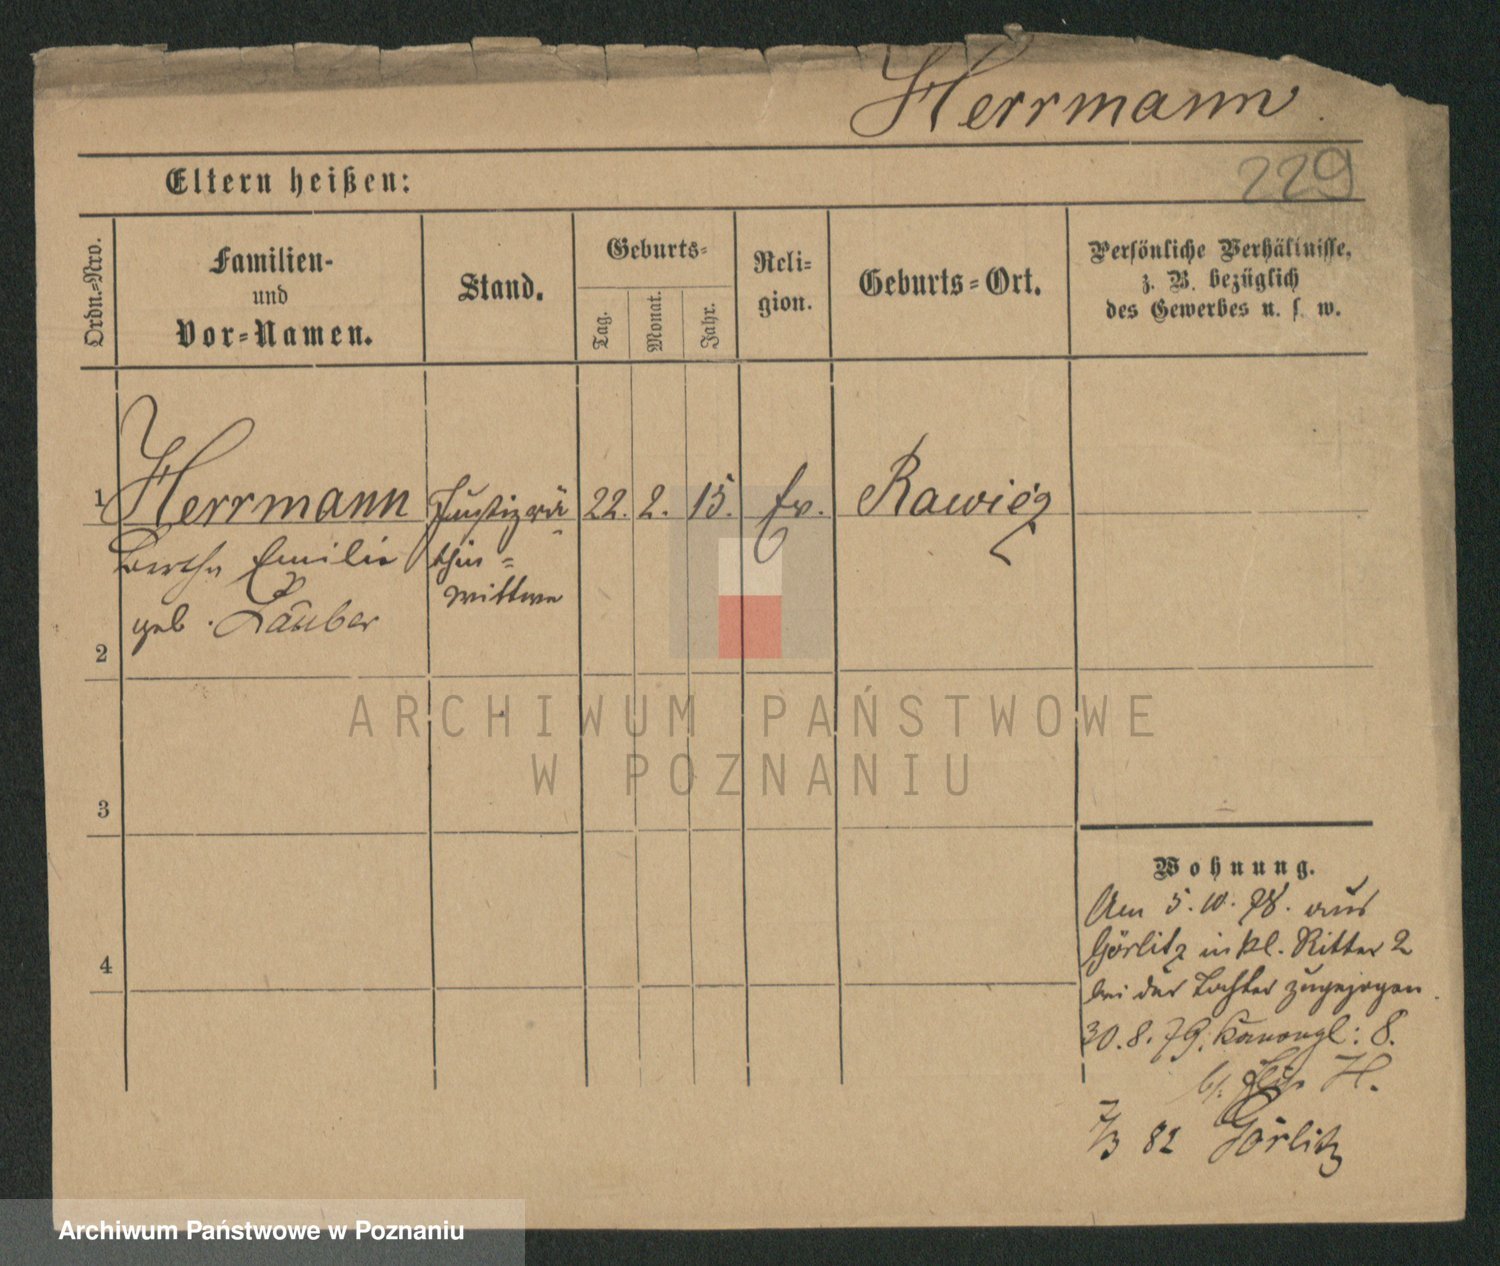 Herrmann
229
Eltern heißen:
Ordn.-Nro.
Familien-
und
Vor-Namen.
Stand.
Geburts-
Tag.
Monat.
Jahr.
Reli-
gion.
Geburts-Ort.
Persönliche Verhältnisse,
z. B. bezüglich
des Gewerbes u. s. w.
1 Herrmann Justizrä 22. 2. 15. Ev. Rawicz
Bertha Emilie thin-
wittwe
geb. Lauber
2
3
4
Wohnung.
Am 5.10.78. aus
Görlitz in kl. Ritter 2
bei der Tochter zugezogen
30.8.79. Kanonpl: 8.
b/. H.
7/3 82 Görlitz
ARCHIWUM PAŃSTWOWE
W POZNANIU
Archiwum Państwowe w Poznaniu